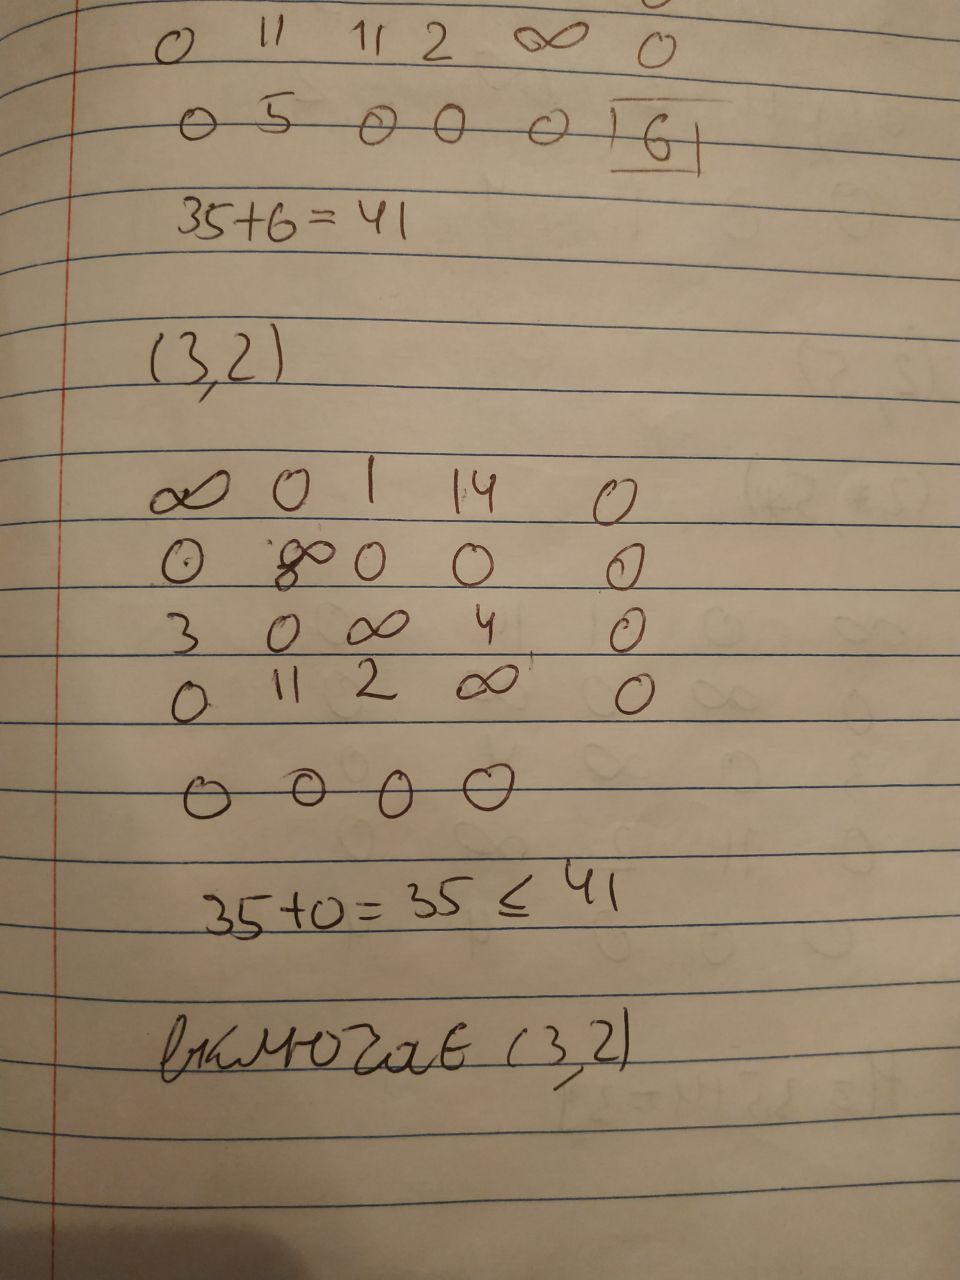 0 11 11 2 ∞ 0
0 5 0 0 0 6
35+6=41
(3,2)
∞ 0 1 14 0
0 ∞ 0 0 0
3 0 ∞ 4 0
0 11 2 ∞ 0
0 0 0 0
35+0=35 ≤ 41
включає (3,2)